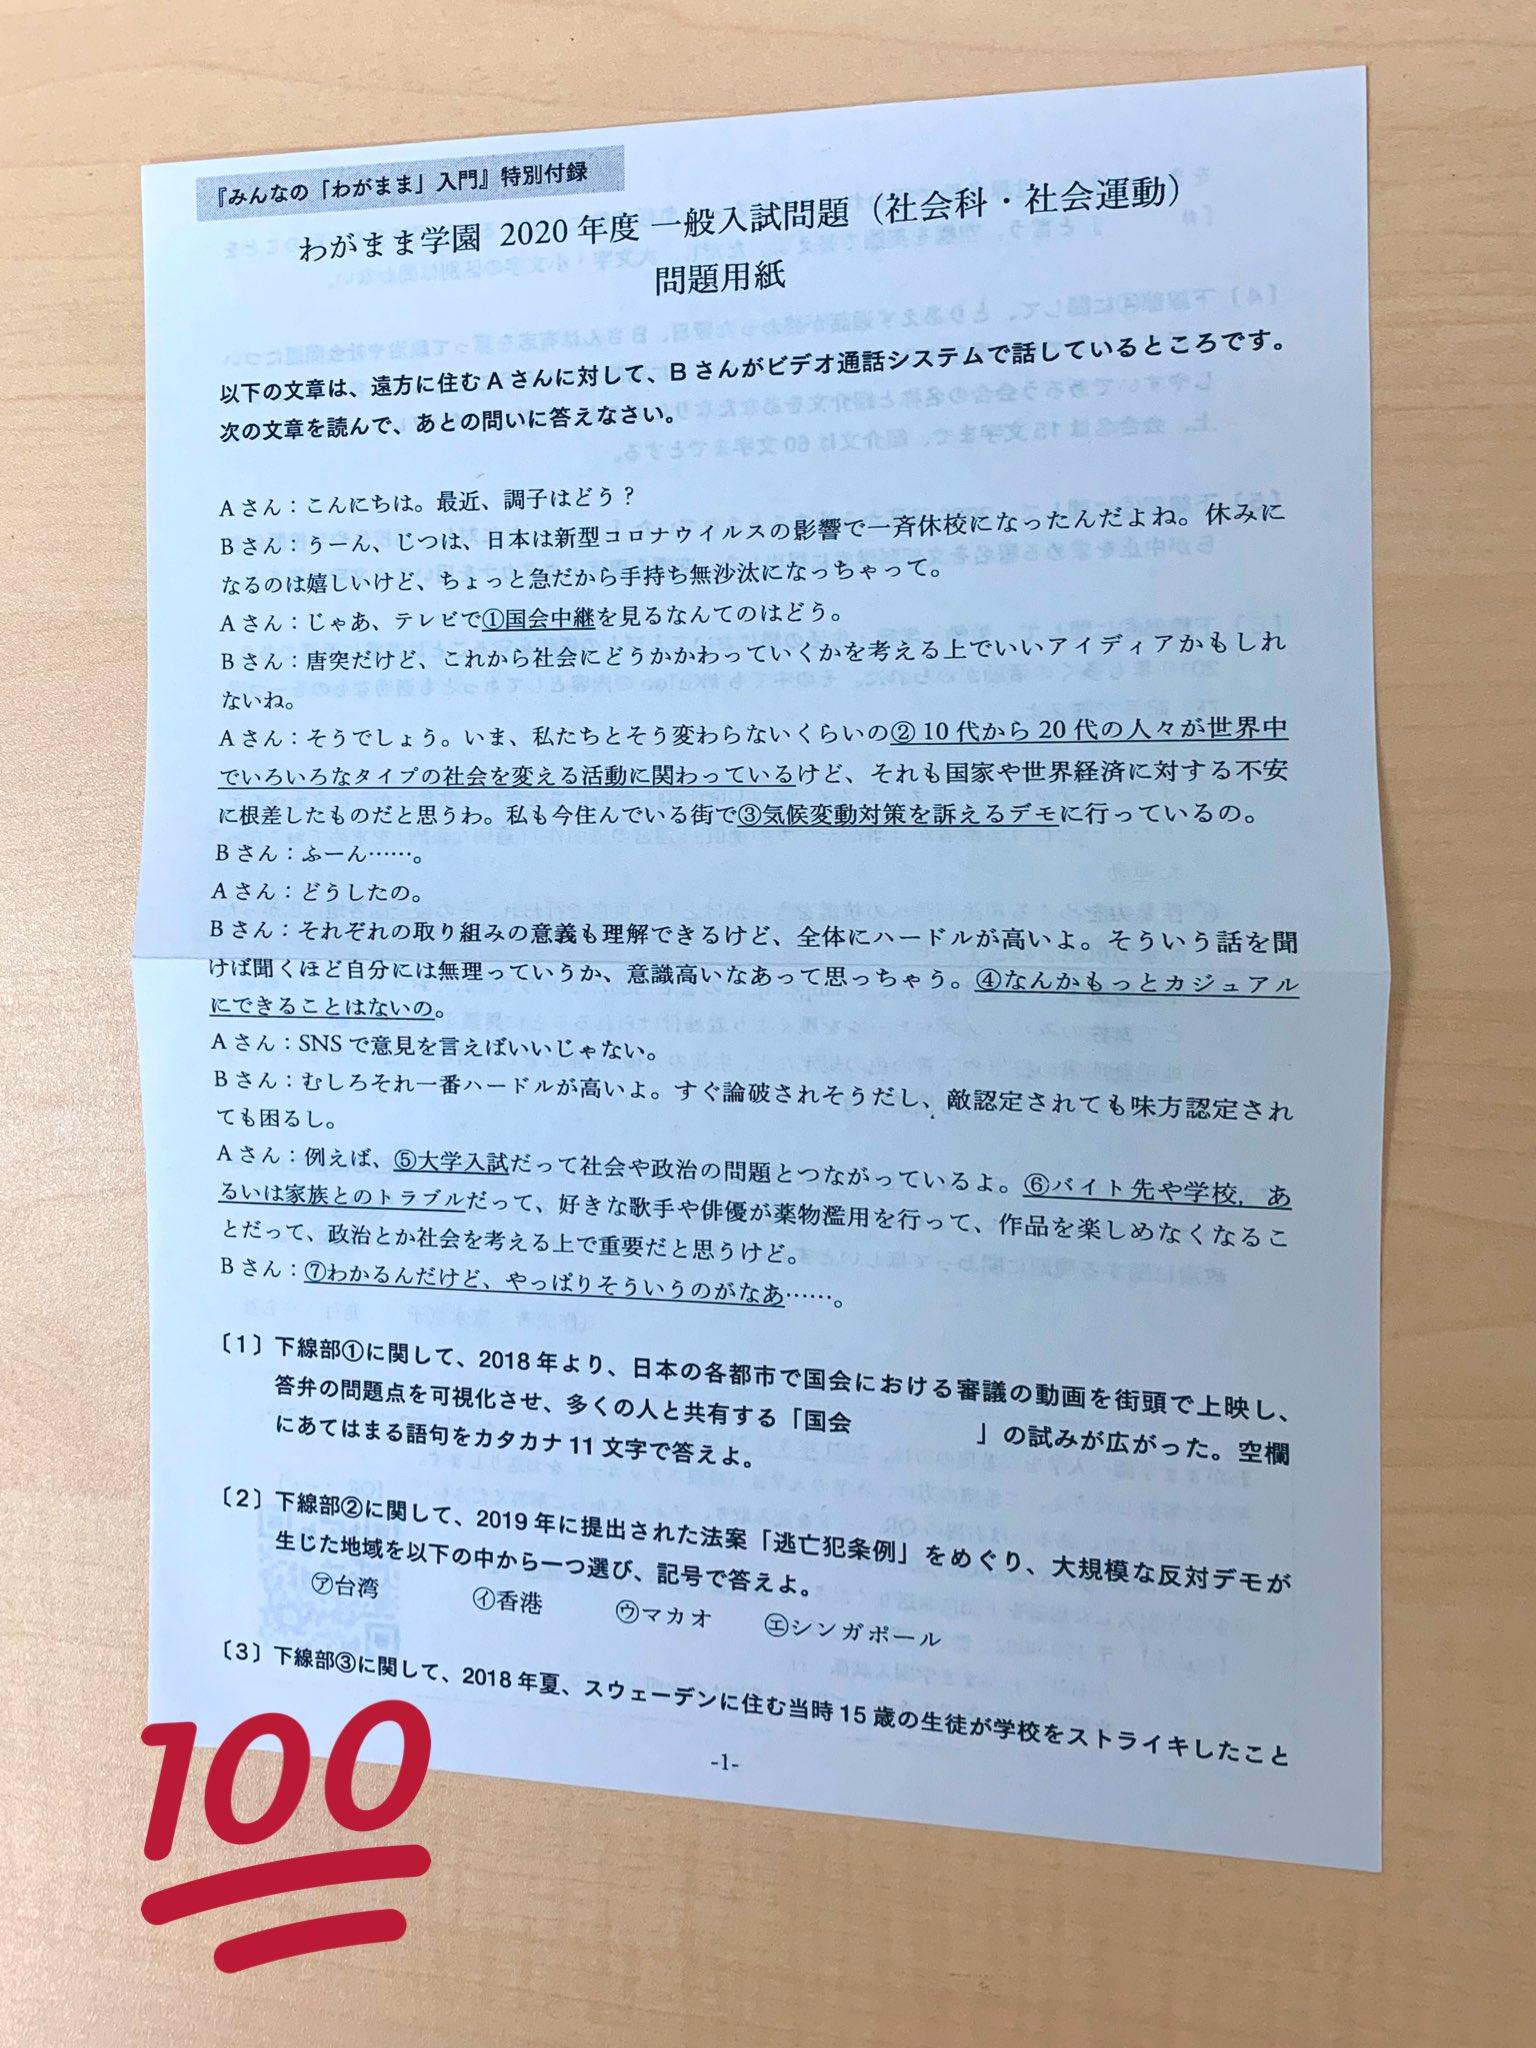 『みんなの「わがまま」入門』特別付録
わがまま学園 2020 年度 一般入試問題（社会科・社会運動）
問題用紙
以下の文章は、遠方に住む A さんに対して、B さんがビデオ通話システムで話しているところです。
次の文章を読んで、あとの問いに答えなさい。
A さん：こんにちは。最近、調子はどう？
B さん：うーん、じつは、日本は新型コロナウイルスの影響で一斉休校になったんだよね。休みに
なるのは嬉しいけど、ちょっと急だから手持ち無沙汰になっちゃって。
A さん：じゃあ、テレビで①国会中継を見るなんてのはどう。
B さん：唐突だけど、これから社会にどうかかわっていくかを考える上でいいアイディアかもしれ
ないね。
A さん：そうでしょう。いま、私たちとそう変わらないくらいの② 10 代から 20 代の人々が世界中
でいろいろなタイプの社会を変える活動に関わっているけど、それも国家や世界経済に対する不安
に根差したものだと思うわ。私も今住んでいる街で③気候変動対策を訴えるデモに行っているの。
B さん：ふーん……。
A さん：どうしたの。
B さん：それぞれの取り組みの意義も理解できるけど、全体にハードルが高いよ。そういう話を聞
けば聞くほど自分には無理っていうか、意識高いなあって思っちゃう。④なんかもっとカジュアル
にできることはないの。
A さん：SNS で意見を言えばいいじゃない。
B さん：むしろそれ一番ハードルが高いよ。すぐ論破されそうだし、敵認定されても味方認定され
ても困るし。
A さん：例えば、⑤大学入試だって社会や政治の問題とつながっているよ。⑥バイト先や学校，あ
るいは家族とのトラブルだって、好きな歌手や俳優が薬物濫用を行って、作品を楽しめなくなるこ
とだって、政治とか社会を考える上で重要だと思うけど。
B さん：⑦わかるんだけど、やっぱりそういうのがなあ……。
〔1〕下線部①に関して、2018 年より、日本の各都市で国会における審議の動画を街頭で上映し、
答弁の問題点を可視化させ、多くの人と共有する「国会　　　　　」の試みが広がった。空欄
にあてはまる語句をカタカナ 11 文字で答えよ。
〔2〕下線部②に関して、2019 年に提出された法案「逃亡犯条例」をめぐり、大規模な反対デモが
生じた地域を以下の中から一つ選び、記号で答えよ。
㋐台湾　㋑香港　㋒マカオ　㋓シンガポール
〔3〕下線部③に関して、2018 年夏、スウェーデンに住む当時 15 歳の生徒が学校をストライキしたこと
-1-
100